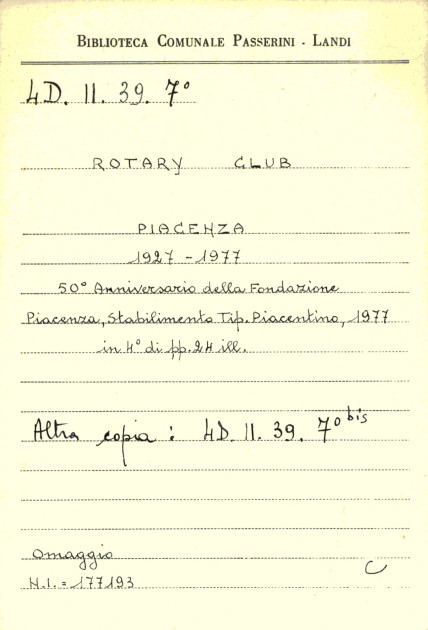 BIBLIOTECA COMUNALE PASSERINI - LANDI
4D. II. 39. 7°
ROTARY CLUB
PIACENZA
1927 - 1977
50° Anniversario della Fondazione
Piacenza, Stabilimento Tip. Piacentino, 1977
in 4° di pp. 24 ill.
Altra copia : 4D. II. 39. 7° bis
Omaggio
N.I. = 177193
C